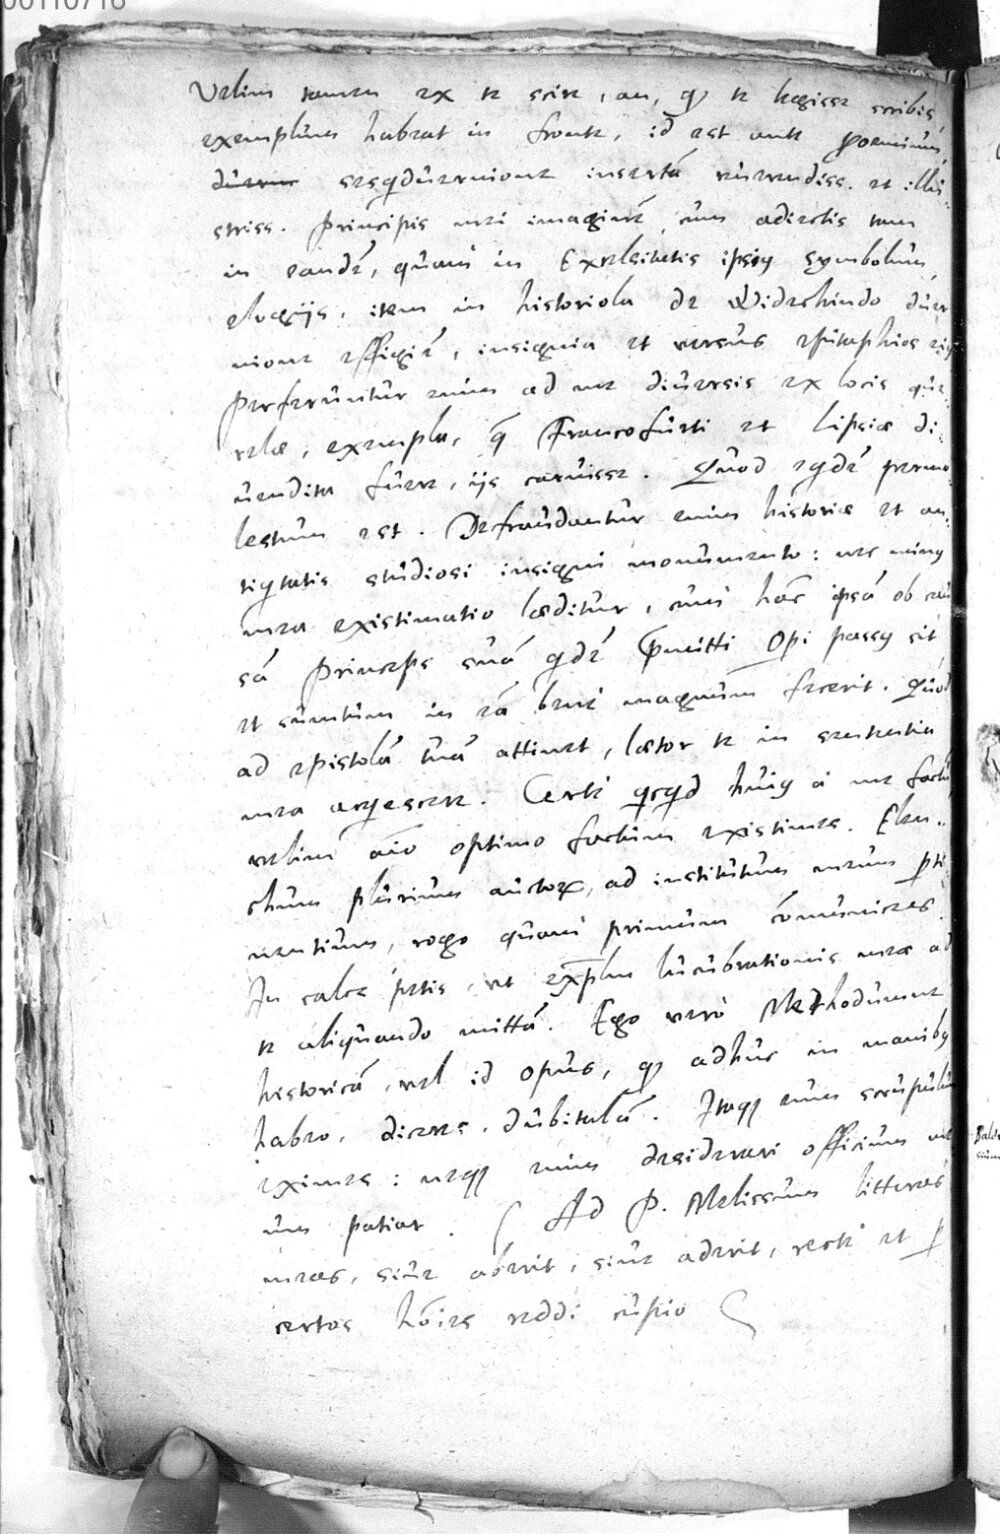 00110716
Velim tamen ex te scire, an, q̃ te legisse scribis,
exemplum habeat in fronte, id est ante
duerm sesqduernione insertã reverendiss. et illu
striss. Principis nri imaginẽ, cum adiectis tum
in eandẽ, quam in Excelsitatis ipsiq symbolum,
elogijs, item in historiola de Widechindo duer
nione effigiẽ, insignia et versus epitaphios eiq
Perferuntur enim ad me diversis ex locis que
relæ, exempla, q̃ Francofurti et Lipsiæ di,
vendita fuere, ijs caruisse. Quod eqdẽ permo
lestum est. Defraudantur enim historiæ et an,
tiqtatis studiosi insigni monumento: nec minq
mea existimatio læditur, cum hãc ipsã ob cau
sã Princeps suã qdẽ p̃mitti Opi passq sit
et sumtum in eã bene magnum fecerit. Quod
ad epistolã tuã attinet, lætor te in sententia
mea acqescere. Certè qcqd huiq à me factũ
velim aĩo optimo factum existimes. Elen,
chum plurium auctorũ, ad institutum meum p̃ti
nentium, rogo quam primum cõmunices.
In calce petis, ut exp̃lum lucubrationis meæ ad
te aliquando mittã. Ego vero Methodumne
historicã, vel id opus, q̃ adhuc in manibq
habeo, diceres, dubitabã. Itaq; eum scrupulum
eximes: neq; enim desiderari officium me
um patiar. ( Ad P. Melissum litteras
meas, sive aberit, sive aderit, rectè et p
certos hõies reddi cupio